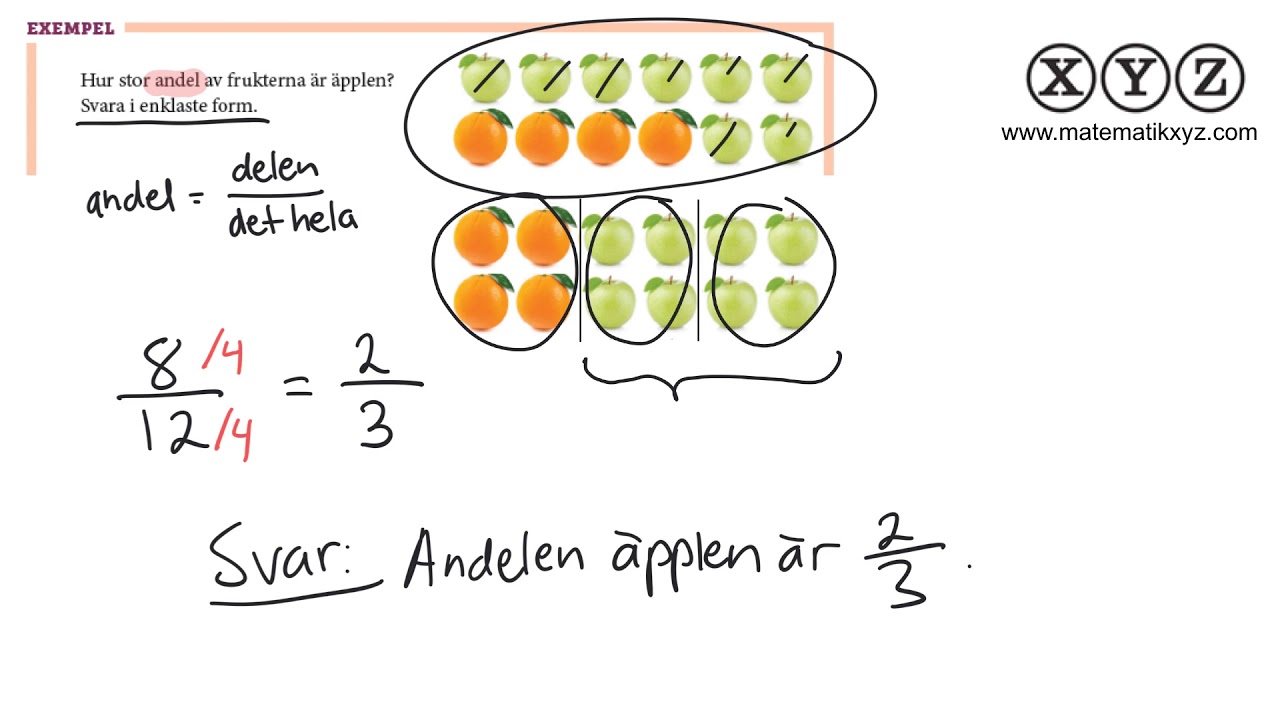 EXEMPEL
Hur stor andel av frukterna är äpplen?
Svara i enklaste form.
andel = delen
det hela
8 /4 = 2
12 /4 3
Svar: Andelen äpplen är 2
3 .
X Y Z
www.matematikxyz.com